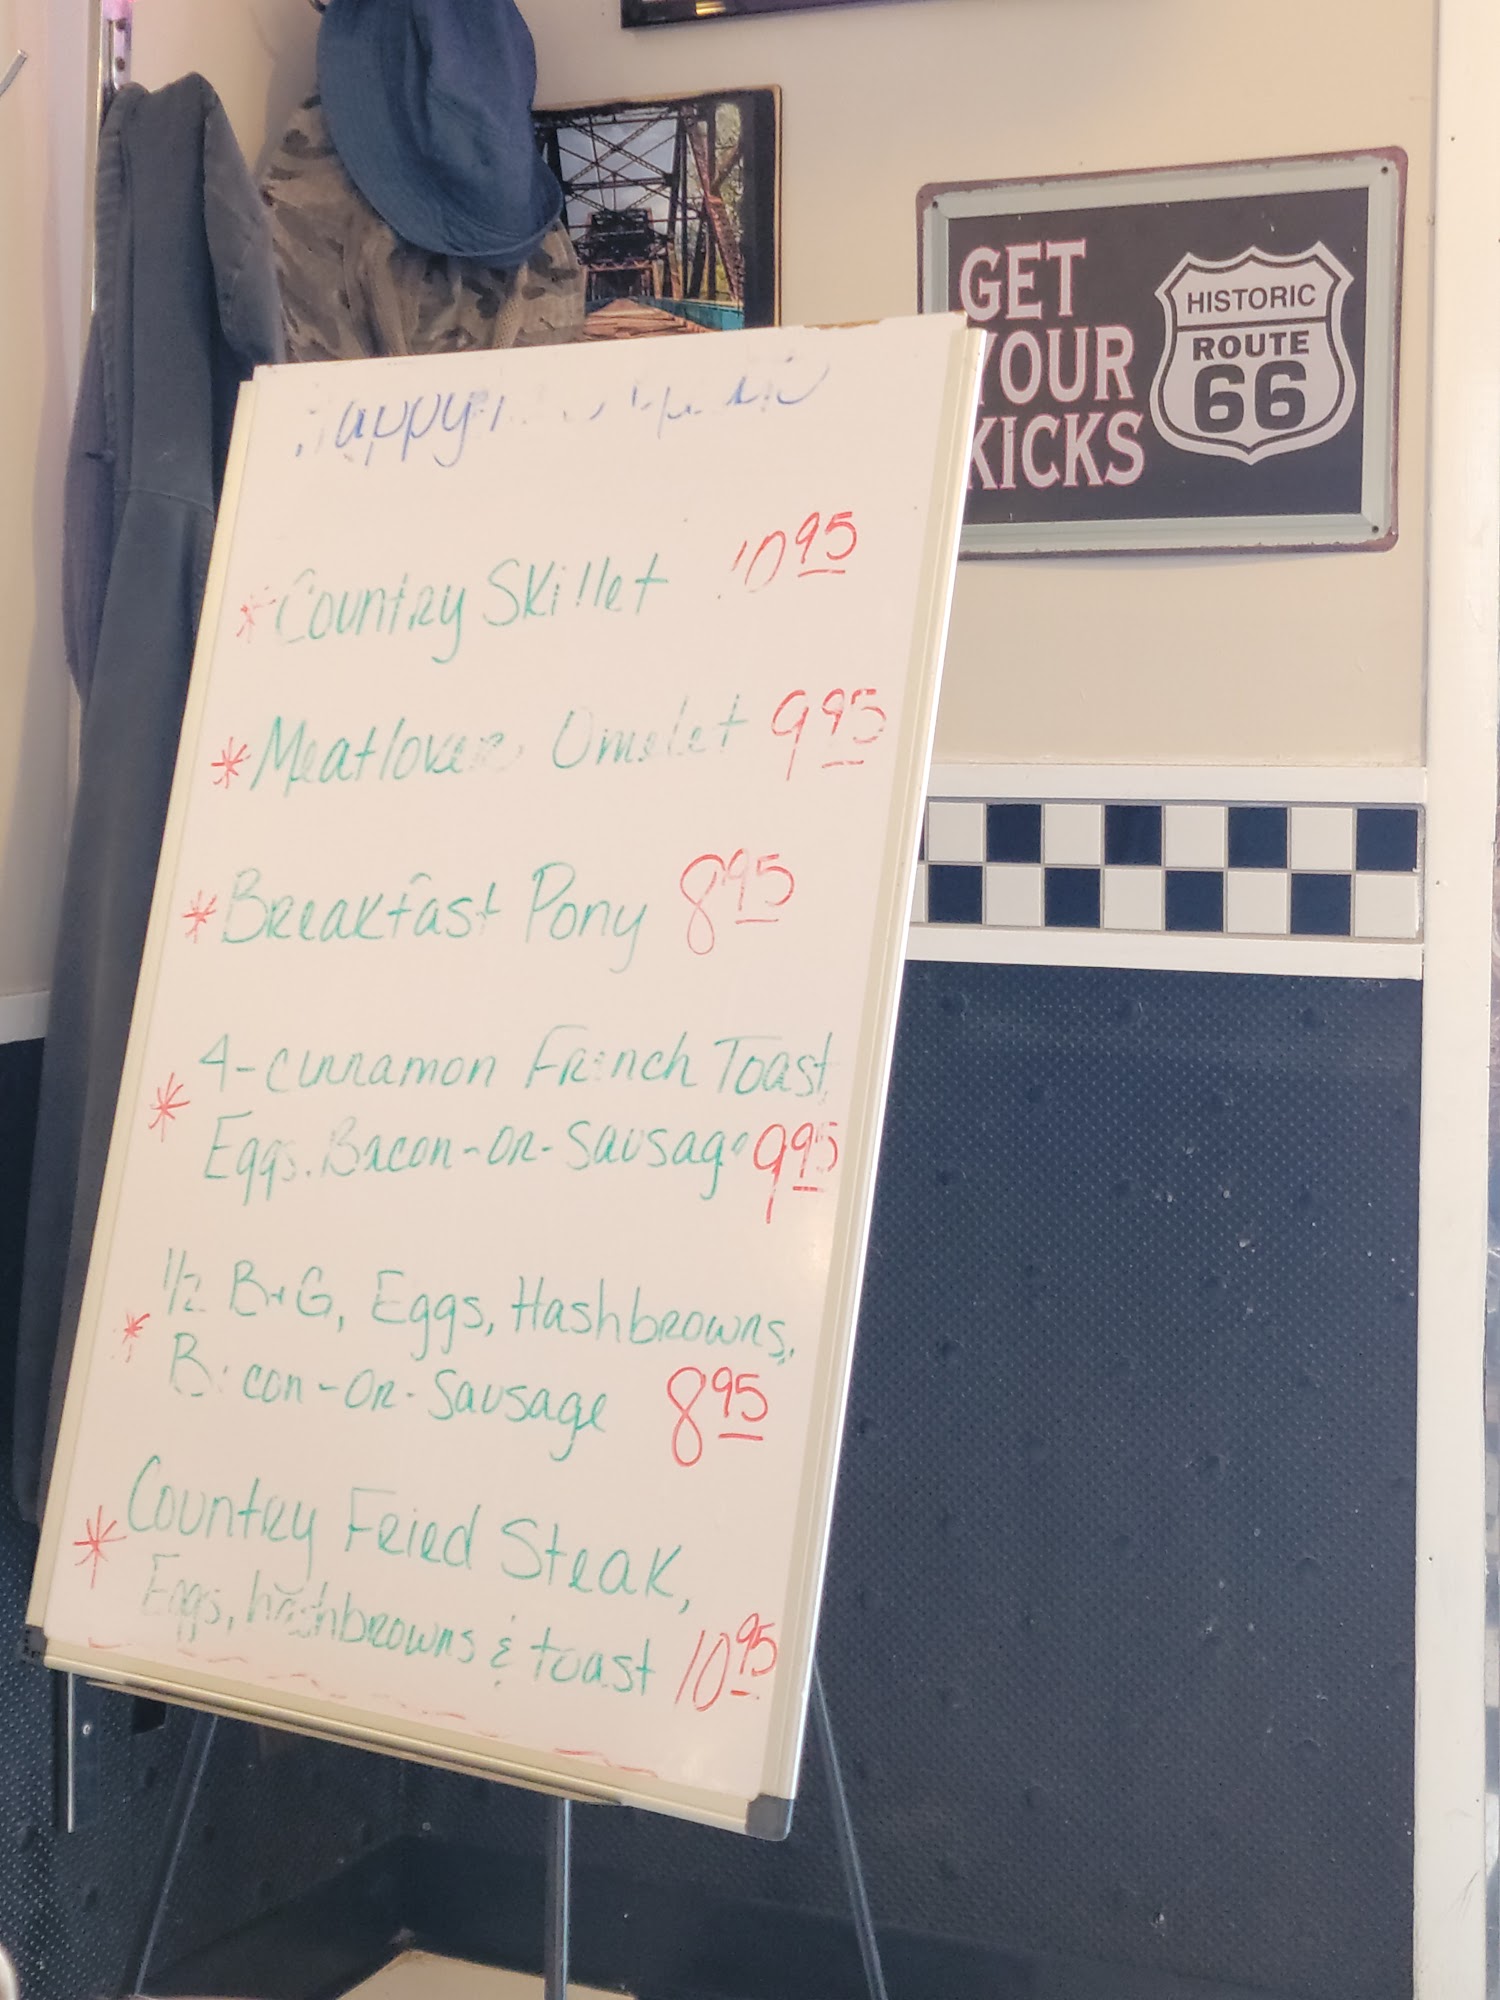 Happy
* Country Skillet 10 95
* Meatlover Omelet 9 95
* Breakfast Pony 8 95
4-cinnamon French Toast,
* Eggs. Bacon-or-Sausage 9 95
1/2 B+G, Eggs, Hashbrowns,
* Bacon-or-Sausage 8 95
* Country Fried Steak,
Eggs, hashbrowns & toast 10 95
GET
YOUR
KICKS
HISTORIC
ROUTE
66